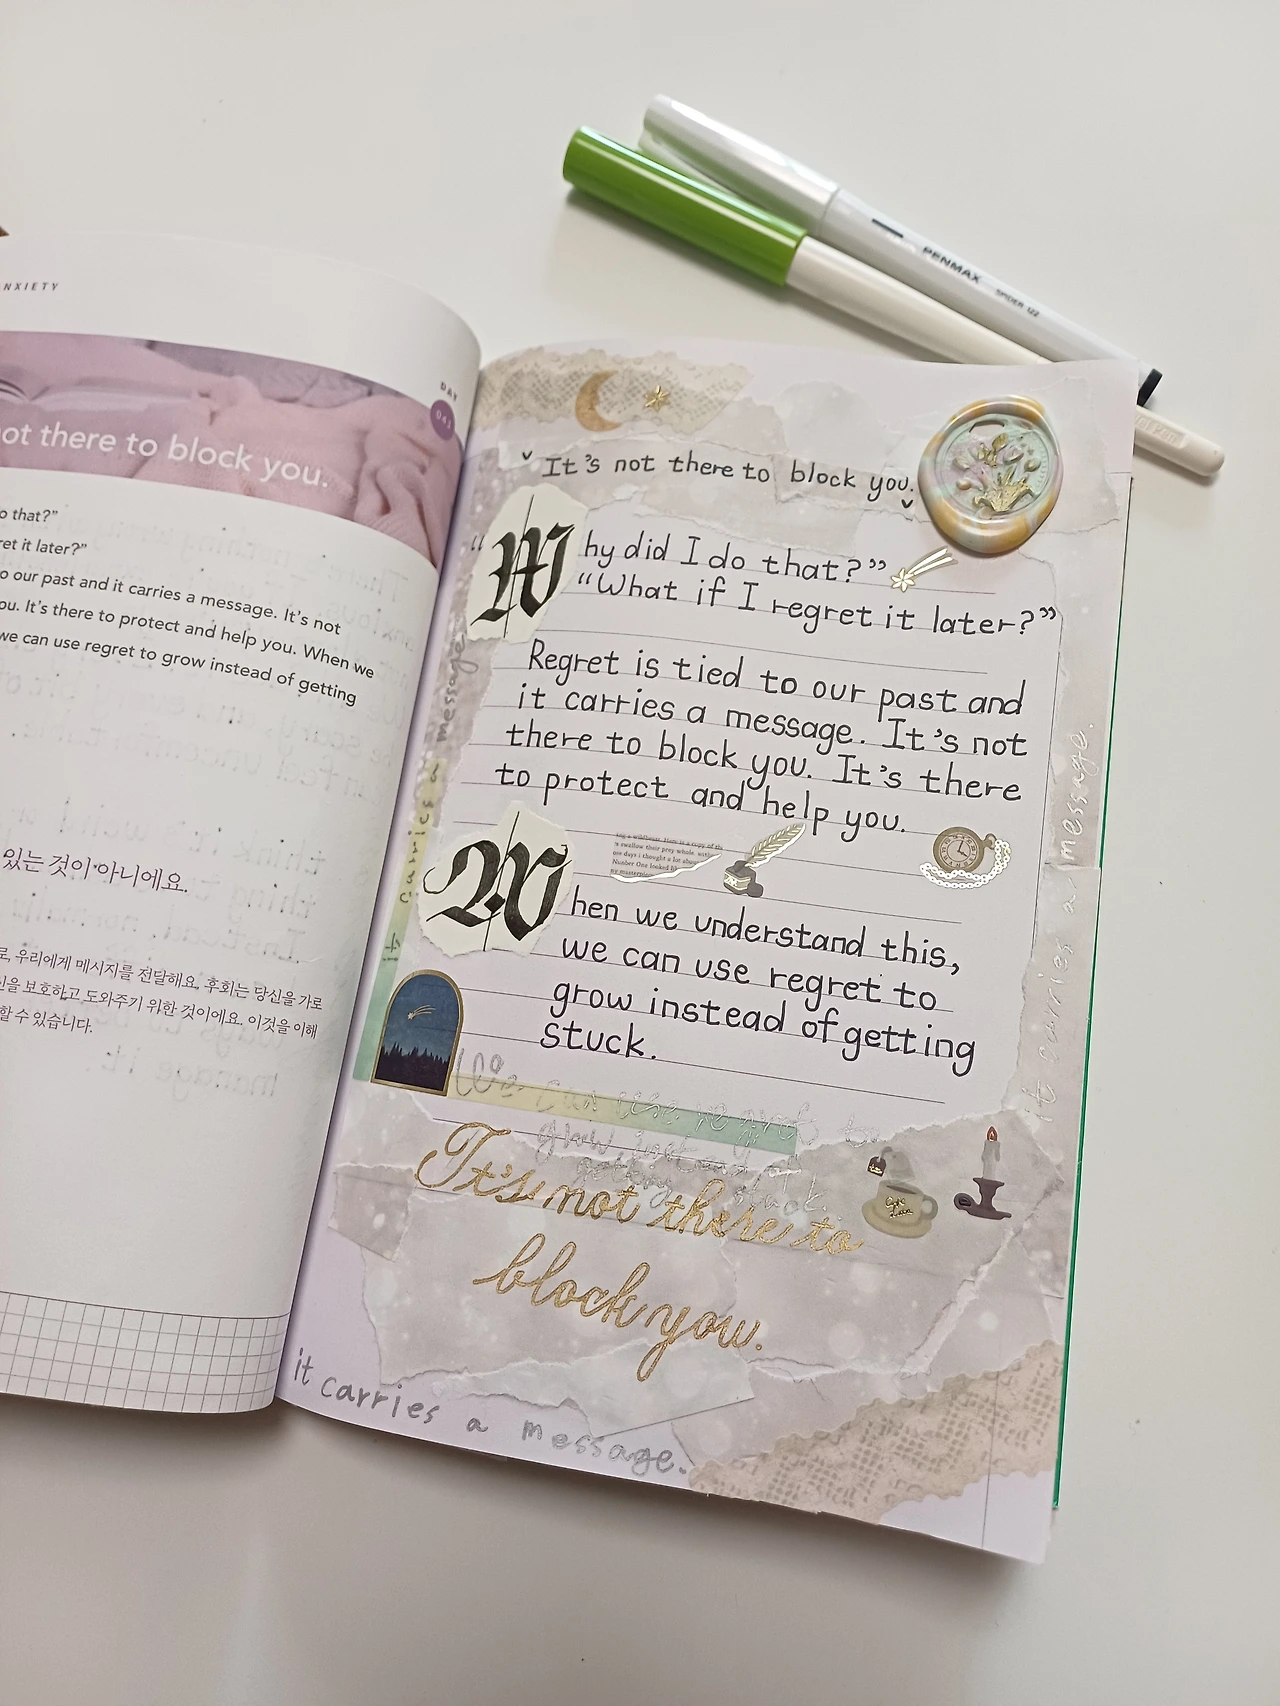 NXIETY
DAY
ot there to block you.
o that?"
ret it later?"
o our past and it carries a message. It's not
ou. It's there to protect and help you. When we
we can use regret to grow instead of getting
있는 것이 아니에요.
로, 우리에게 메시지를 전달해요. 후회는 당신을 가로
신을 보호하고 도와주기 위한 것이에요. 이것을 이해
할 수 있습니다.
PENMAX
SPIDER
It's not there to block you.
"Why did I do that?"
"What if I regret it later?"
Regret is tied to our past and
it carries a message. It's not
there to block you. It's there
to protect and help you.
When we understand this,
we can use regret to
grow instead of getting
stuck.
We can use regret to
grow instead of
getting stuck.
It's not there to
block you.
it carries a message.
it carries a message.
it carries a message.